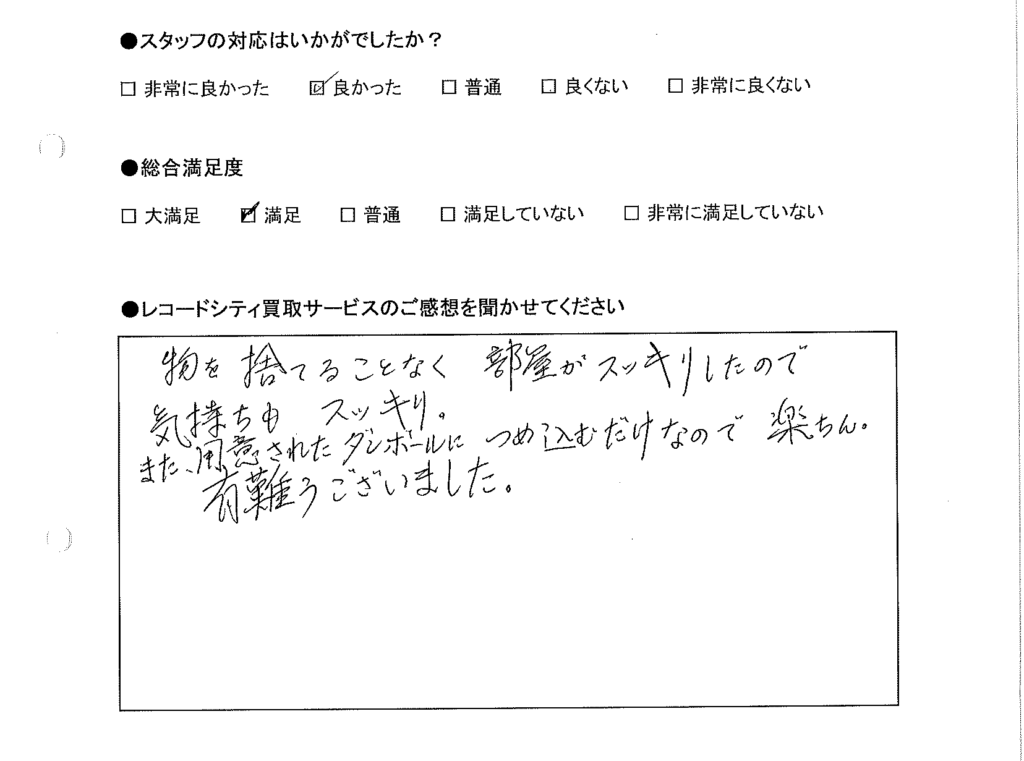 ●スタッフの対応はいかがでしたか？
□ 非常に良かった ☑ 良かった □ 普通 □ 良くない □ 非常に良くない
●総合満足度
□ 大満足 ☑ 満足 □ 普通 □ 満足していない □ 非常に満足していない
●レコードシティ買取サービスのご感想を聞かせてください
物を捨てることなく 部屋がスッキリしたので
気持ちも スッキリ。
また、用意されたダンボールに つめ込むだけなので 楽ちん。
有難うございました。